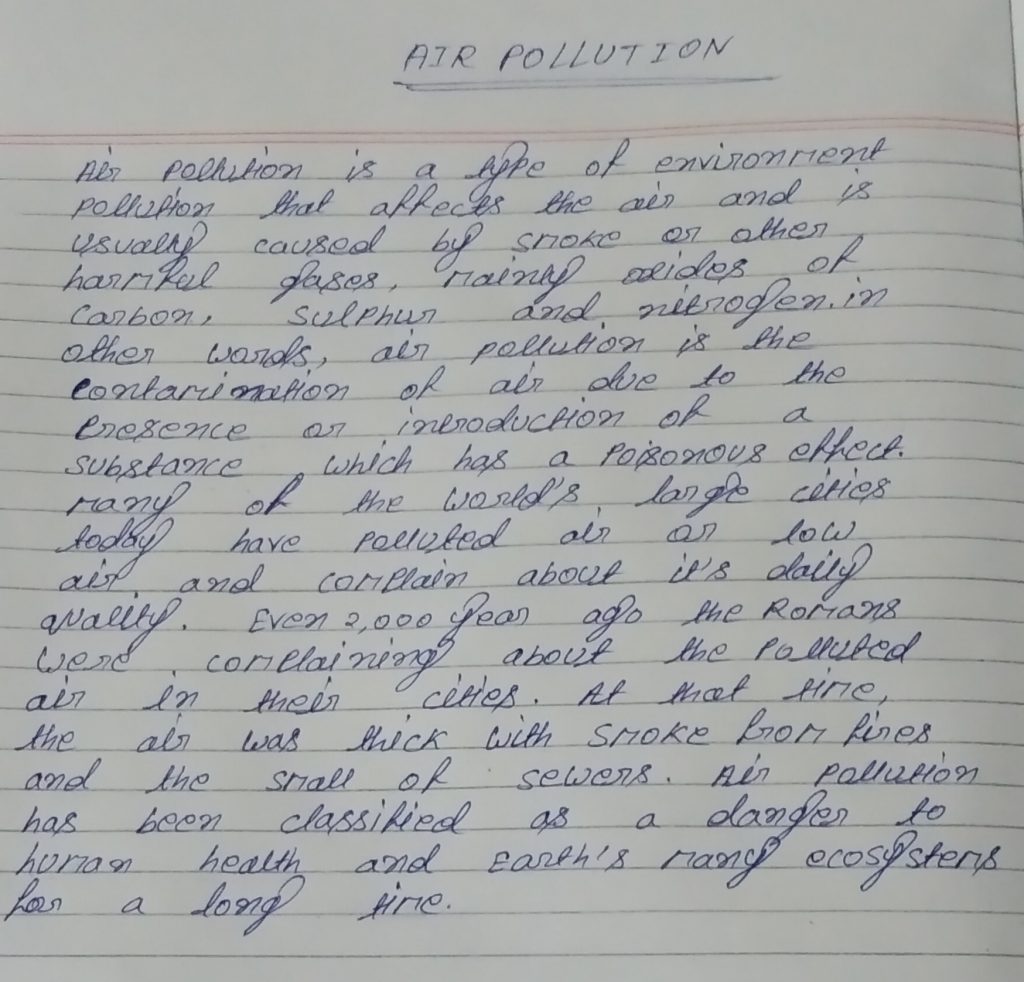 AIR POLLUTION
Air pollution is a type of environment
pollution that affects the air and is
usually caused by smoke or other
harmful gases, mainly oxides of
carbon, sulphur and nitrogen. in
other words, air pollution is the
contamination of air due to the
presence or introduction of a
substance which has a poisonous effect.
many of the world's large cities
today have polluted air or low
air and complain about it's daily
quality. Even 2,000 year ago the Romans
were complaining about the polluted
air in their cities. At that time,
the air was thick with smoke from fires
and the small of sewers. Air pollution
has been classified as a danger to
human health and Earth's many ecosystems
for a long time.